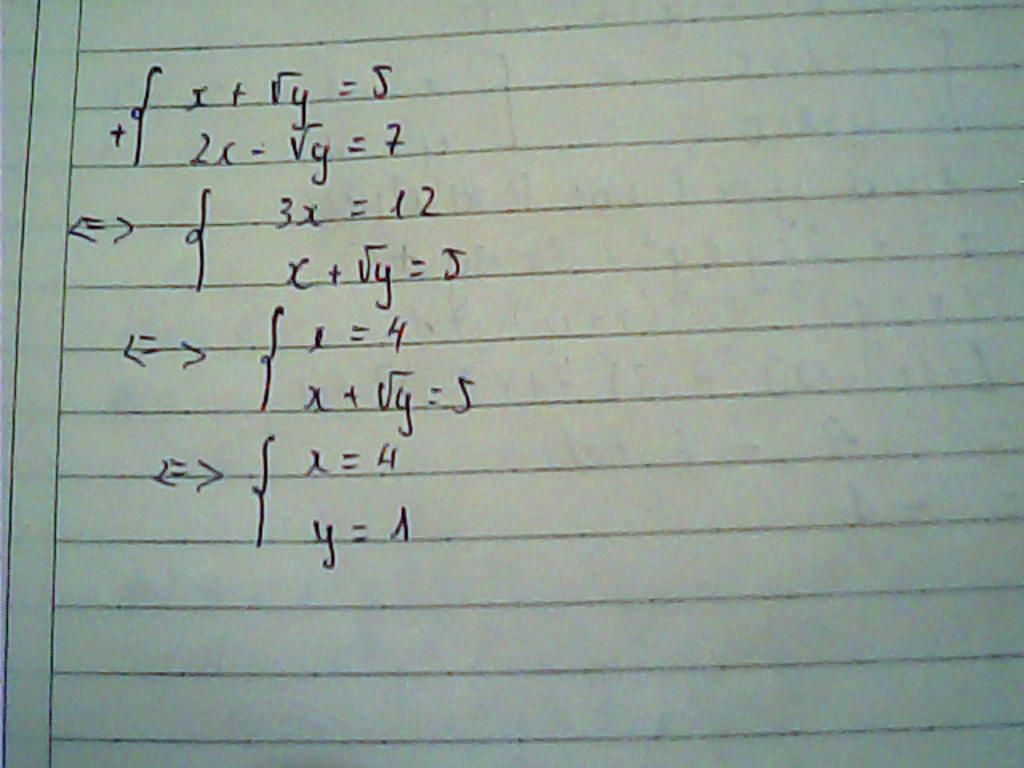 x + √y = 5
+ 2x - √y = 7
<=> 3x = 12
x + √y = 5
<=> x = 4
x + √y = 5
<=> x = 4
y = 1